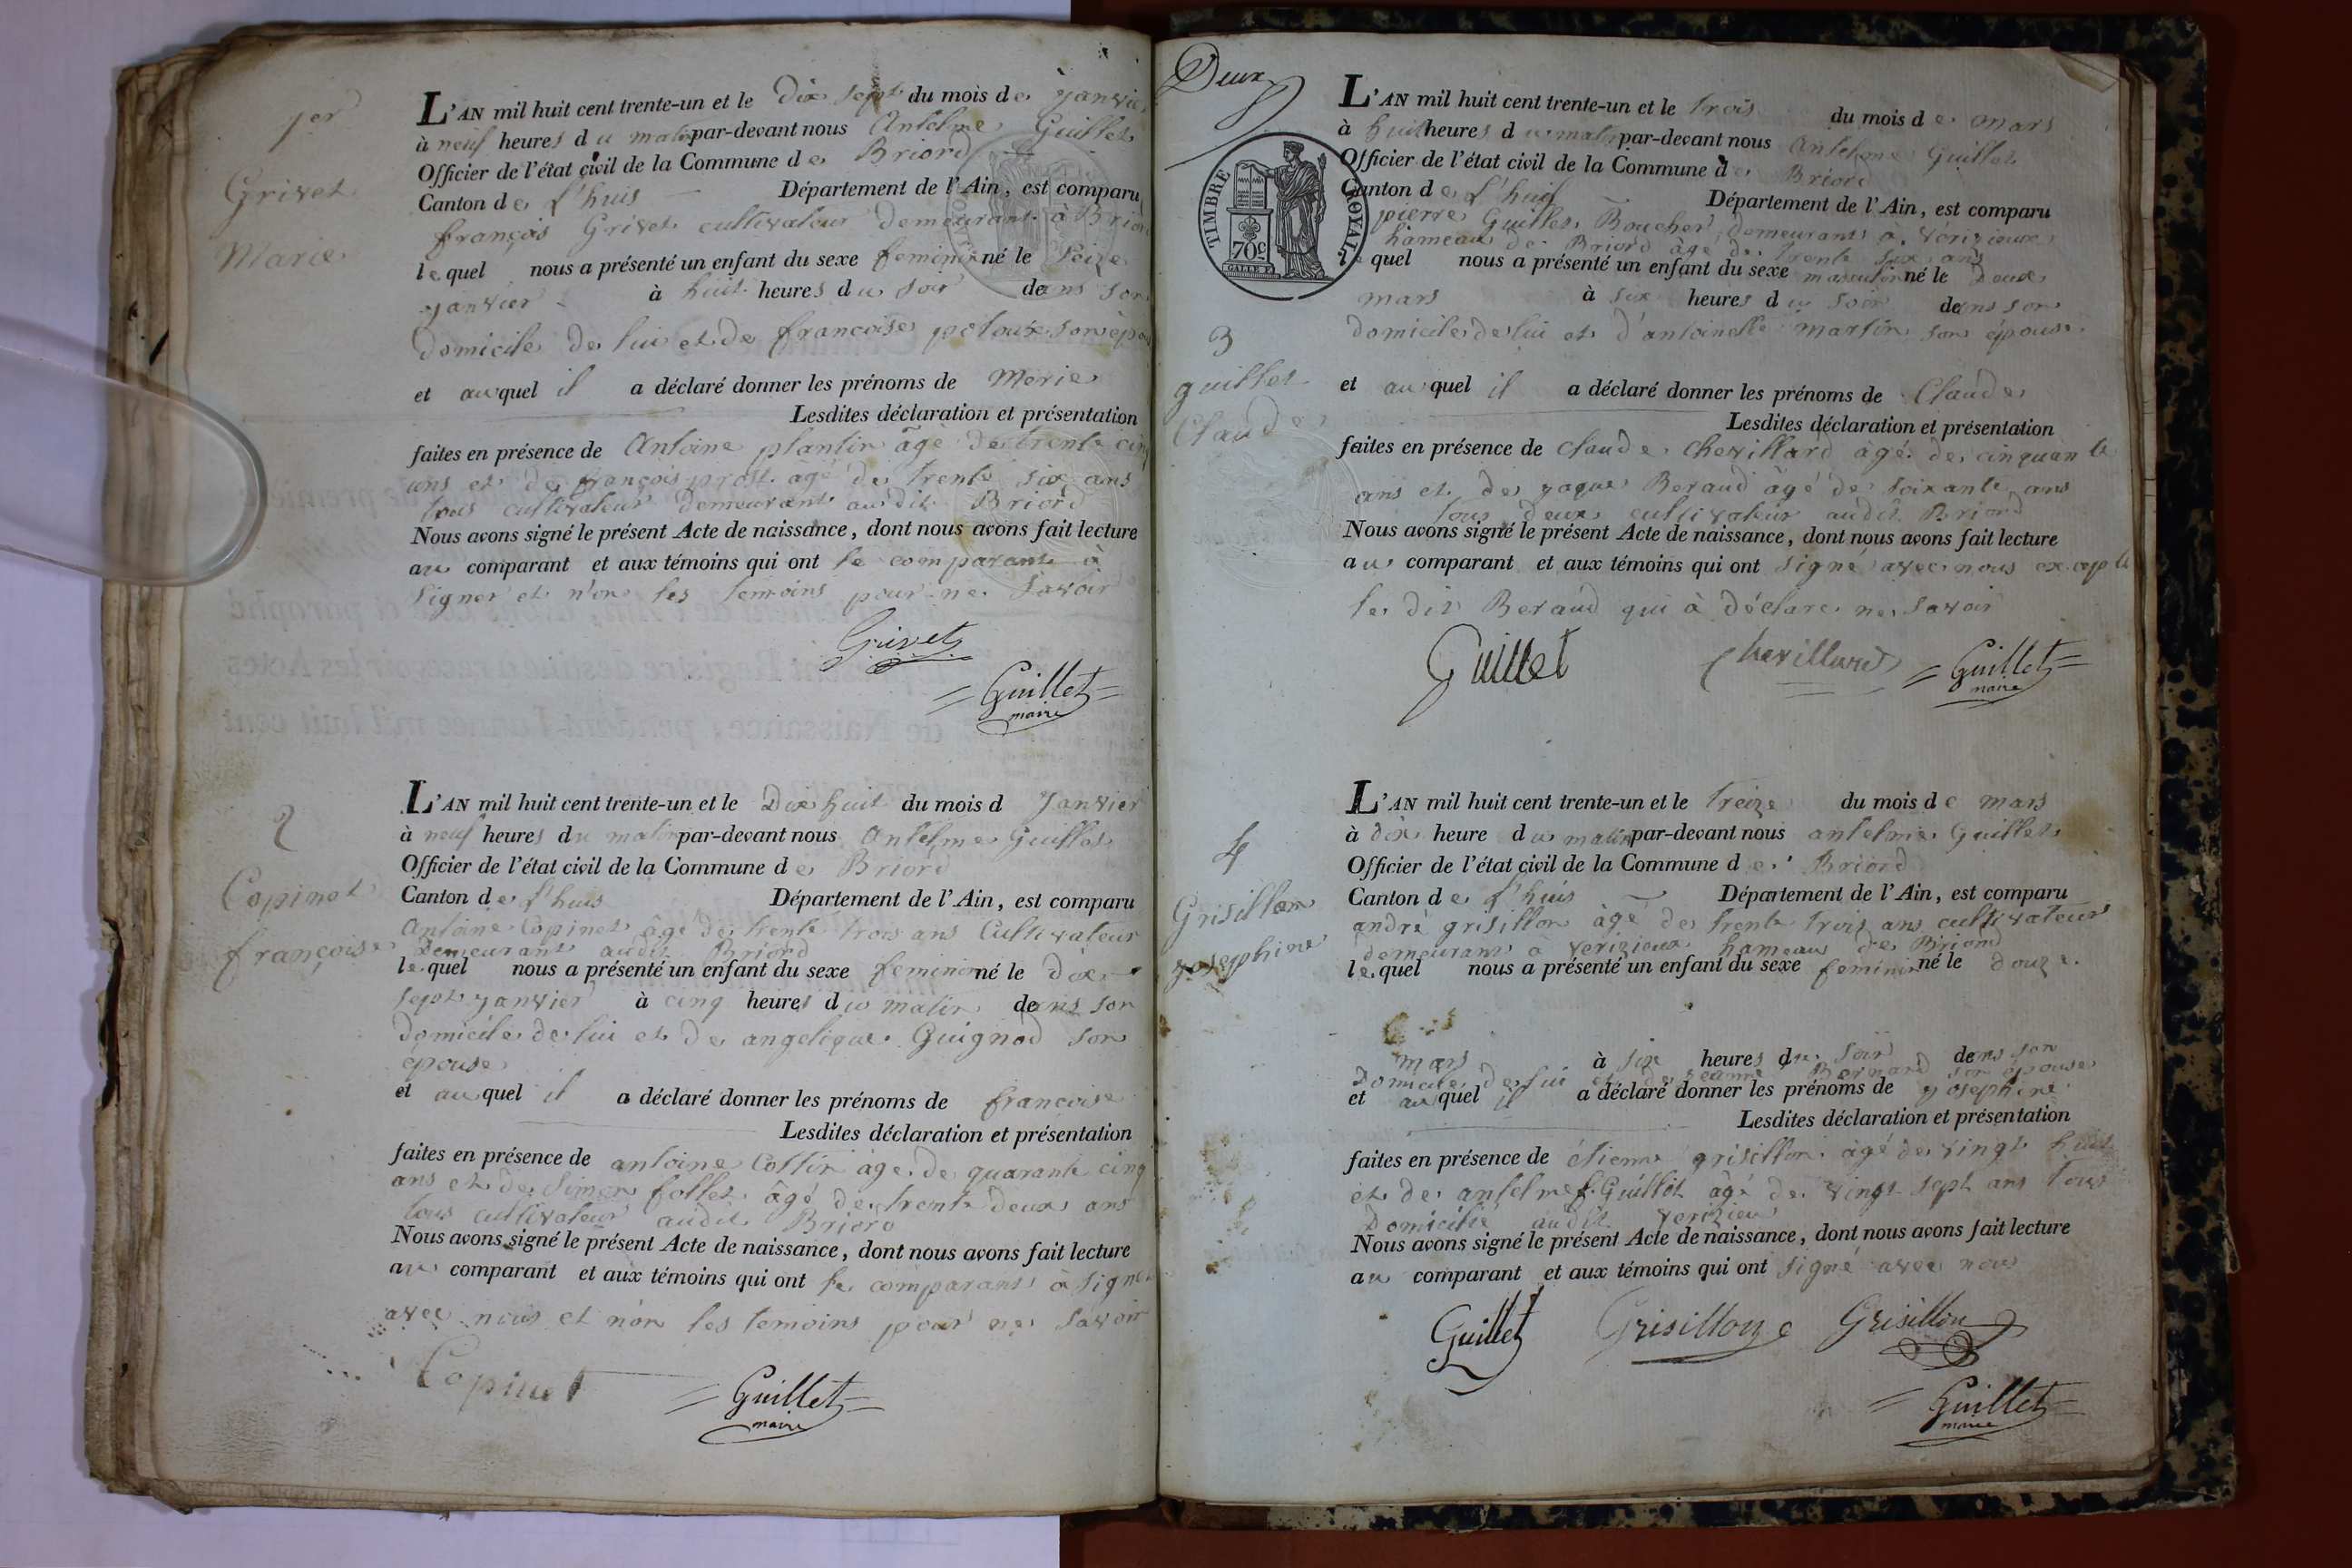 1er
Grivet
Marie
L'AN mil huit cent trente-un et le Dix sept du mois de janvier
à neuf heures du matin par-devant nous Antelme Guillet
Officier de l'état civil de la Commune de Briord
Canton de l'huis Département de l'Ain, est comparu
françois Grivet cultivateur Demeurant à Briord
lequel nous a présenté un enfant du sexe feminin né le Seize
janvier à huit heures du soir dans son
Domicile de lui et de francoise son épouse
et auquel il a déclaré donner les prénoms de Marie
Lesdites déclaration et présentation
faites en présence de Antoine plantin âgé de trente cinq
ans et de françois prost âgé de trente six ans
tous cultivateur Demeurant audit Briord
Nous avons signé le présent Acte de naissance, dont nous avons fait lecture
au comparant et aux témoins qui ont le comparant à
signer et non les temoins pour ne savoir
Grivet
Guillet
maire
2
Copinet
françoise
L'AN mil huit cent trente-un et le Dix huit du mois d Janvier
à neuf heures du matin par-devant nous Antelme Guillet
Officier de l'état civil de la Commune de Briord
Canton de l'huis Département de l'Ain, est comparu
Antoine Copinet âgé de trente trois ans Cultivateur
Demeurant audit Briord
lequel nous a présenté un enfant du sexe feminin né le dix
sept janvier à cinq heures du matin dans son
Domicile de lui et de angelique Guignod son
épouse
et auquel il a déclaré donner les prénoms de francoise
Lesdites déclaration et présentation
faites en présence de antoine Cottin âgé de quarante cinq
ans et de Simon follet âgé de trente deux ans
tous cultivateur audit Briord
Nous avons signé le présent Acte de naissance, dont nous avons fait lecture
au comparant et aux témoins qui ont le comparant à signer
avec nous et non les temoins pour ne savoir
Copinet
Guillet
maire
Deux
TIMBRE ROYAL
70c
3
guillet
Claude
L'AN mil huit cent trente-un et le trois du mois de mars
à huit heures du matin par-devant nous Antelme Guillet
Officier de l'état civil de la Commune de Briord
Canton de l'huis Département de l'Ain, est comparu
pierre Guillet Boucher demeurant à Vérizieux
hameau de Briord âgé de trente six ans
lequel nous a présenté un enfant du sexe masculin né le deux
mars à six heures du soir dans son
domicile de lui et d'antoinette martin son épouse
et auquel il a déclaré donner les prénoms de Claude
Lesdites déclaration et présentation
faites en présence de claude chevillard âgé de cinquante
ans et de jaque Beraud âgé de soixante ans
tous deux cultivateur audit Briord
Nous avons signé le présent Acte de naissance, dont nous avons fait lecture
au comparant et aux témoins qui ont signé avec nous excepte
le dit Beraud qui à déclare ne savoir
Guillet
chevillard
Guillet
maire
4
Grisillon
josephine
L'AN mil huit cent trente-un et le treize du mois de mars
à dix heure du matin par-devant nous antelme Guillet
Officier de l'état civil de la Commune de Briord
Canton de l'huis Département de l'Ain, est comparu
andré grisillon âgé de trente trois ans cultivateur
demeurant à verizieux hameau de Briord
lequel nous a présenté un enfant du sexe feminin né le douze
mars à six heures du soir dans son
Domicile de lui et de jeanne Bernard son épouse
et auquel il a déclaré donner les prénoms de josephine
Lesdites déclaration et présentation
faites en présence de étienne grisillon âgé de vingt huit
et de antelme f. Guillet âgé de vingt sept ans tous
Domicilié audit verizieu
Nous avons signé le présent Acte de naissance, dont nous avons fait lecture
au comparant et aux témoins qui ont signé avec nous
Guillet
Grisillon e
Grisillon
Guillet
maire